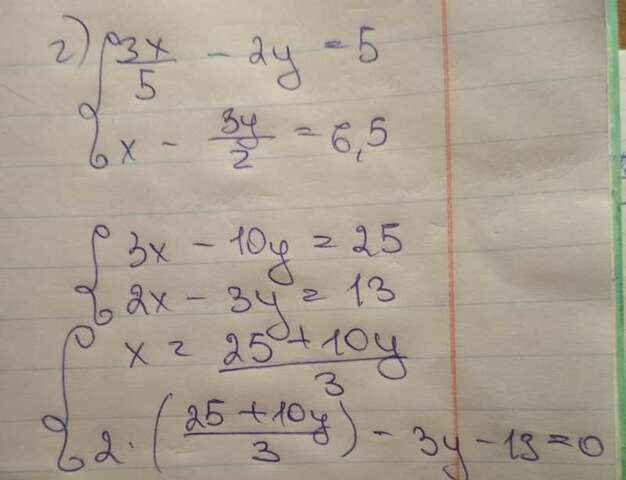 г) 3x/5 - 2y = 5
x - 3y/2 = 6,5
3x - 10y = 25
2x - 3y = 13
x = 25 + 10y/3
2 · (25 + 10y/3) - 3y - 13 = 0